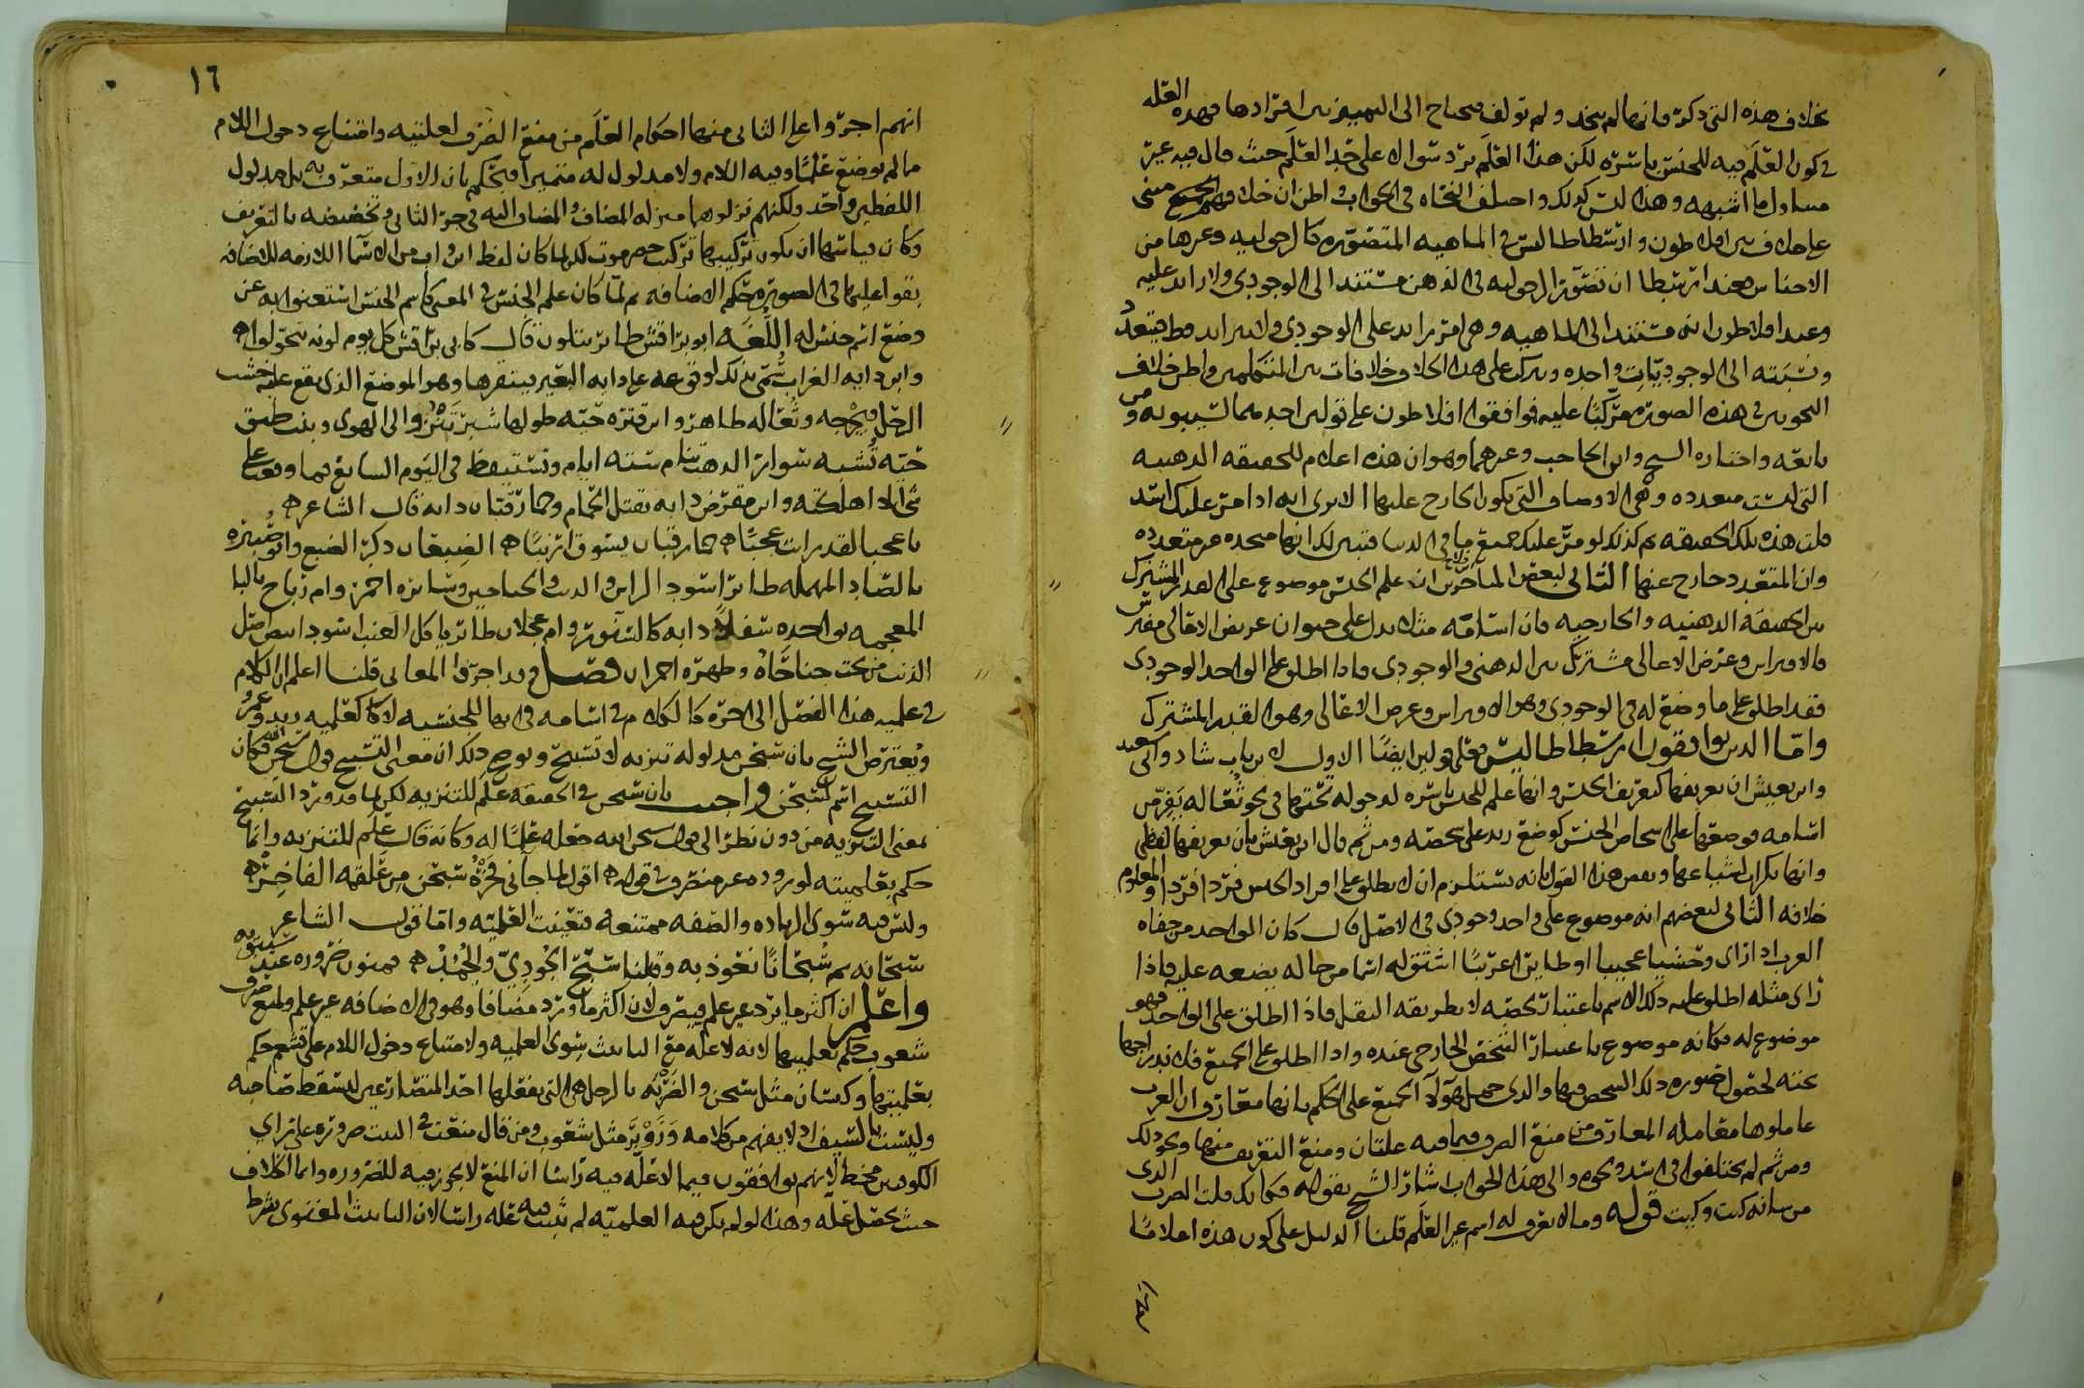 بخلاف هذه التي ذكره فانها لم تتخذ ولم تولف فيحتاج الى التمييز بين افرادها فهذه العله
في كون العلم فيه للجنس باسره لكن هذا العلم يرد سوال على حد العلم حيث قال فيه غير
متناول ما اشبهه وهذا ليس كذلك واختلف النحاه في الجواب واظن ان خلافهم مبنى
على خلاف بين افلاطون وارسطاطاليس في الماهيه المتصوره كالرجوليه وغيرها من
الاجناس فعند ارسطا ان تصور الرجوليه في الذهن مستند الى الوجودي ولا زايد عليه
وعند افلاطون انه مستند الى الماهيه وهي امر زايد على الوجودي
ونسبته الى الوجوديات واحده على هذا خلافات بين المتكلمين واظن خلاف
النحويين في هذه الصوره عليه فوافقوا افلاطون على قولين احدهما لسيبويه ومن
تابعه واختاره الشيخ وابن الحاجب وغيرهما وهو ان هذه اعلام للحقيقه الذهنيه
التي ليست متعدده وهي الاوصاف التي يكون الخارج عليها الا ترى انه اذا مر عليك اسد
قلت هذه تلك الحقيقه ثم كذلك لو مر عليك جميع ما في الدنيا فتبين لك انها متحده غير متعدده
وان المتعدد خارج عنها الثاني لبعض المتاخرين ان علم الجنس موضوع على القدر المشترك
بين الحقيقه الذهنيه والخارجيه فان اسامه مثلا يدل على حيوان عريض الاعالي مفترس
فالافتراس وعرض الاعالي مشترك بين الذهني والوجودي فاذا اطلق على الواحد الوجودي
فقد اطلق على ما وضع له في الوجودي وهو الافتراس وعرض الاعالي وهو القدر المشترك
واما الذين يوافقون ارسطاطاليس فعلى قولين ايضا الاول لابن باب شاذ وابي سعيد
وابن يعيش ان تعريفها كتعريف الجنس وانها علم للجنس باسره لدخوله تحتها في نحو ثعاله يفر من
اسامه فوضعها على اشخاص الجنس كوضع زيد على شخصه ومن ثم قال ابن يعيش بان تعريفها لفظي
وانها نكرات لشياعها ونقض هذا القول بانه يستلزم ان لا يطلق على افراد الجنس فردا فردا والمعلوم
خلافه الثاني لبعضهم انه موضوع على واحد وجودي في الاصل قال كان الواحد من جفاه
العرب اذا راى وحشيا عجيبا او طايرا غريبا اشتق له اسما من حاله يضعه عليه فاذا
راى مثله اطلق عليه ذلك الاسم باعتبار شخصه لا بطريقه النقل فاذا اطلق على الواحد فهو
موضوع له فكانه موضوع باعتبار الشخص الخارجي عنده واذا اطلق على الجميع فلاندراجها
تحته لحصول صوره ذلك الشخص فيها والذي حمل هولا الجميع على الحكم بانها معارف ان العرب
عاملوها معامله المعارف من منع الصرف فيما فيه علتان ومنع التعريف منها ونحو ذلك
ومن ثم لم يختلفوا في اسد ونحوه والى هذا الجواب اشار الشيخ بقوله فكانك قلت الضرب الذي
من شانه كيت وكيت قوله وما لا يعرف له اسم غير العلم قلنا الدليل على كون هذه اعلاما
١٦
انهم اجروا على الثاني منها احكام العلم من منع الصرف لعلتيه وامتناع دخول اللام
ما لم يوضع علما وفيه اللام ولا مدلول له متميزا فيحكم بان الاول متعرف به بل مدلول
اللفظين واحد ولكنهم نزلوهما منزله المضاف والمضاف اليه في جر الثاني وتخصيصه بالتعريف
وكان قياسها ان يكون تركيبها تركيب حضرموت لكن لما كان لفظ ابن واب من الاسما اللازمه للاضافه
بقوا عليها في الصوره حكم الاضافه ثم لما كان علم الجنس في المعنى كاسم الجنس استغنوا به عن
وضع اسم جنس له اللغه ابو براقش طاير يتلون قال كابي براقش كل يوم لونه يتحول
وابن دايه الغراب سمي بذلك لوقوعه على دايه البعير فينقرها وهو الموضع الذي يقع عليه خشب
الرحل فيجرحه وثعاله ظاهر وابن قتره حيه طولها شبر تنزو الى الهوى وبنت طبق
حيه تشبه سوار الذهب تنام سته ايام وتستيقظ في اليوم السابع فما وقعت على
شي الا اهلكته وابن مقرض دابه يقتل الحمام وحمار قبان دابه قال الشاعر
يا عجبا لقد رايت عجبا حمار قبان يسوق ارنبا الضبعان ذكر الضبع وابو صبيره
بالصاد المهمله طاير اسود الراس والذنب والجناحين وسايره احمر وام رباح بالبا
المعجمه بواحده سفلا دابه كالسنور وام عجلان طاير ياكل العنب اسود ابيض اصل
الذنب من تحت جناحاه وظهره احمران فصل وقد اجروا المعاني قلنا اعلم ان الكلام
في علميه هذا الفصل الى اخره كالكلام في اسامه في انها للجنسيه لا كعلميه زيد وعمرو
ويعترض الشيخ بان سبحن مدلوله تنزيه لا تسبيح ويوضح ذلك ان معنى التسبيح قول سبحن الله فكان
التسبيح اسم لسبحن واجيب بان سبحن في الحقيقه علم للتنزيه لكن لما قد ورد التسبيح
بمعنى التنزيه من دون نظر الى قول سبحن الله جعله علما له وكانه قال علم للتنزيه وانما
حكم بعلميته لوروده غير منصرف في قوله اقول لما جاني فخره سبحن من علقمه الفاخره
وليس فيه سوى الزياده والصفه ممتنعه فتعينت العلميه واما قول الشاعر
سبحانه ثم سبحانا نعوذ به وقبلنا سبح الجودي والجمد فمنون ضروره عند سيبويه
واعلم ان اكثر ما يرد غير علم فيصرف لان اكثر ما ورد مضافا وهو في الاضافه غير علم ولمنع صرف
شعوب حكم بعلميتها لانه لا عله مع التانيث سوى العلميه ولامتناع دخول اللام على قشعم حكم
بعلميتها وكيسان مثل سبحن والضربه بالرجل هي التي يفعلها احد المتصارعين ليسقط صاحبه
وليست بالسيف اذ لا يفهم من كلامه وزوبر مثل شعوب ومن قال منعت في البيت ضروره على راي
الكوفيين مخطي لانهم يوافقون فيما لا عله فيه راسا ان المنع لا يجوز فيه للضروره وانما الخلاف
حيث تحصل عله وهذا لو لم يكن فيه العلميه لم تثبت فيه عله راسا لان التانيث المعنوي بشرط